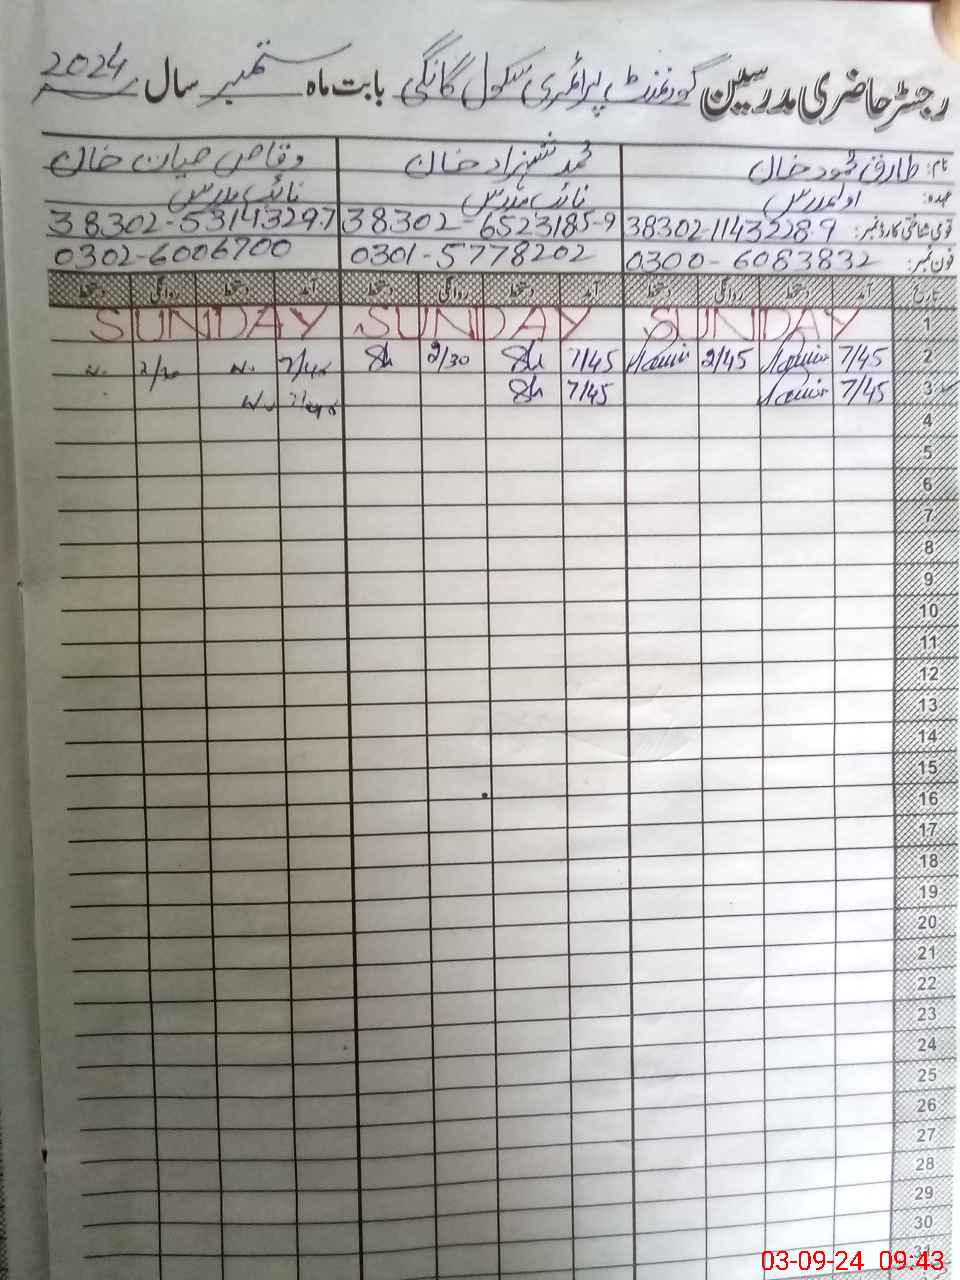 رجسٹر حاضری مدرسین گورنمنٹ پرائمری سکول گانگی بابت ماہ ستمبر سال 2024
نام: طارق محمود خان محمد شہزاد خان وقاص حیات خان
عہدہ: اول مدرس نائب مدرس نائب مدرس
قومی شناختی کارڈ نمبر: 38302-1143228-9 38302-6523185-9 38302-5314329-7
فون نمبر: 0300-6083832 0301-5778202 0302-6006700
تاریخ آمد دستخط روانگی دستخط آمد دستخط روانگی دستخط آمد دستخط روانگی دستخط
1 SUNDAY SUNDAY SUNDAY
2 7/45 2/45 7/45 2/30 7/45 2/30
3 7/45 7/45 7/45
4
5
6
7
8
9
10
11
12
13
14
15
16
17
18
19
20
21
22
23
24
25
26
27
28
29
30
31
03-09-24 09:43